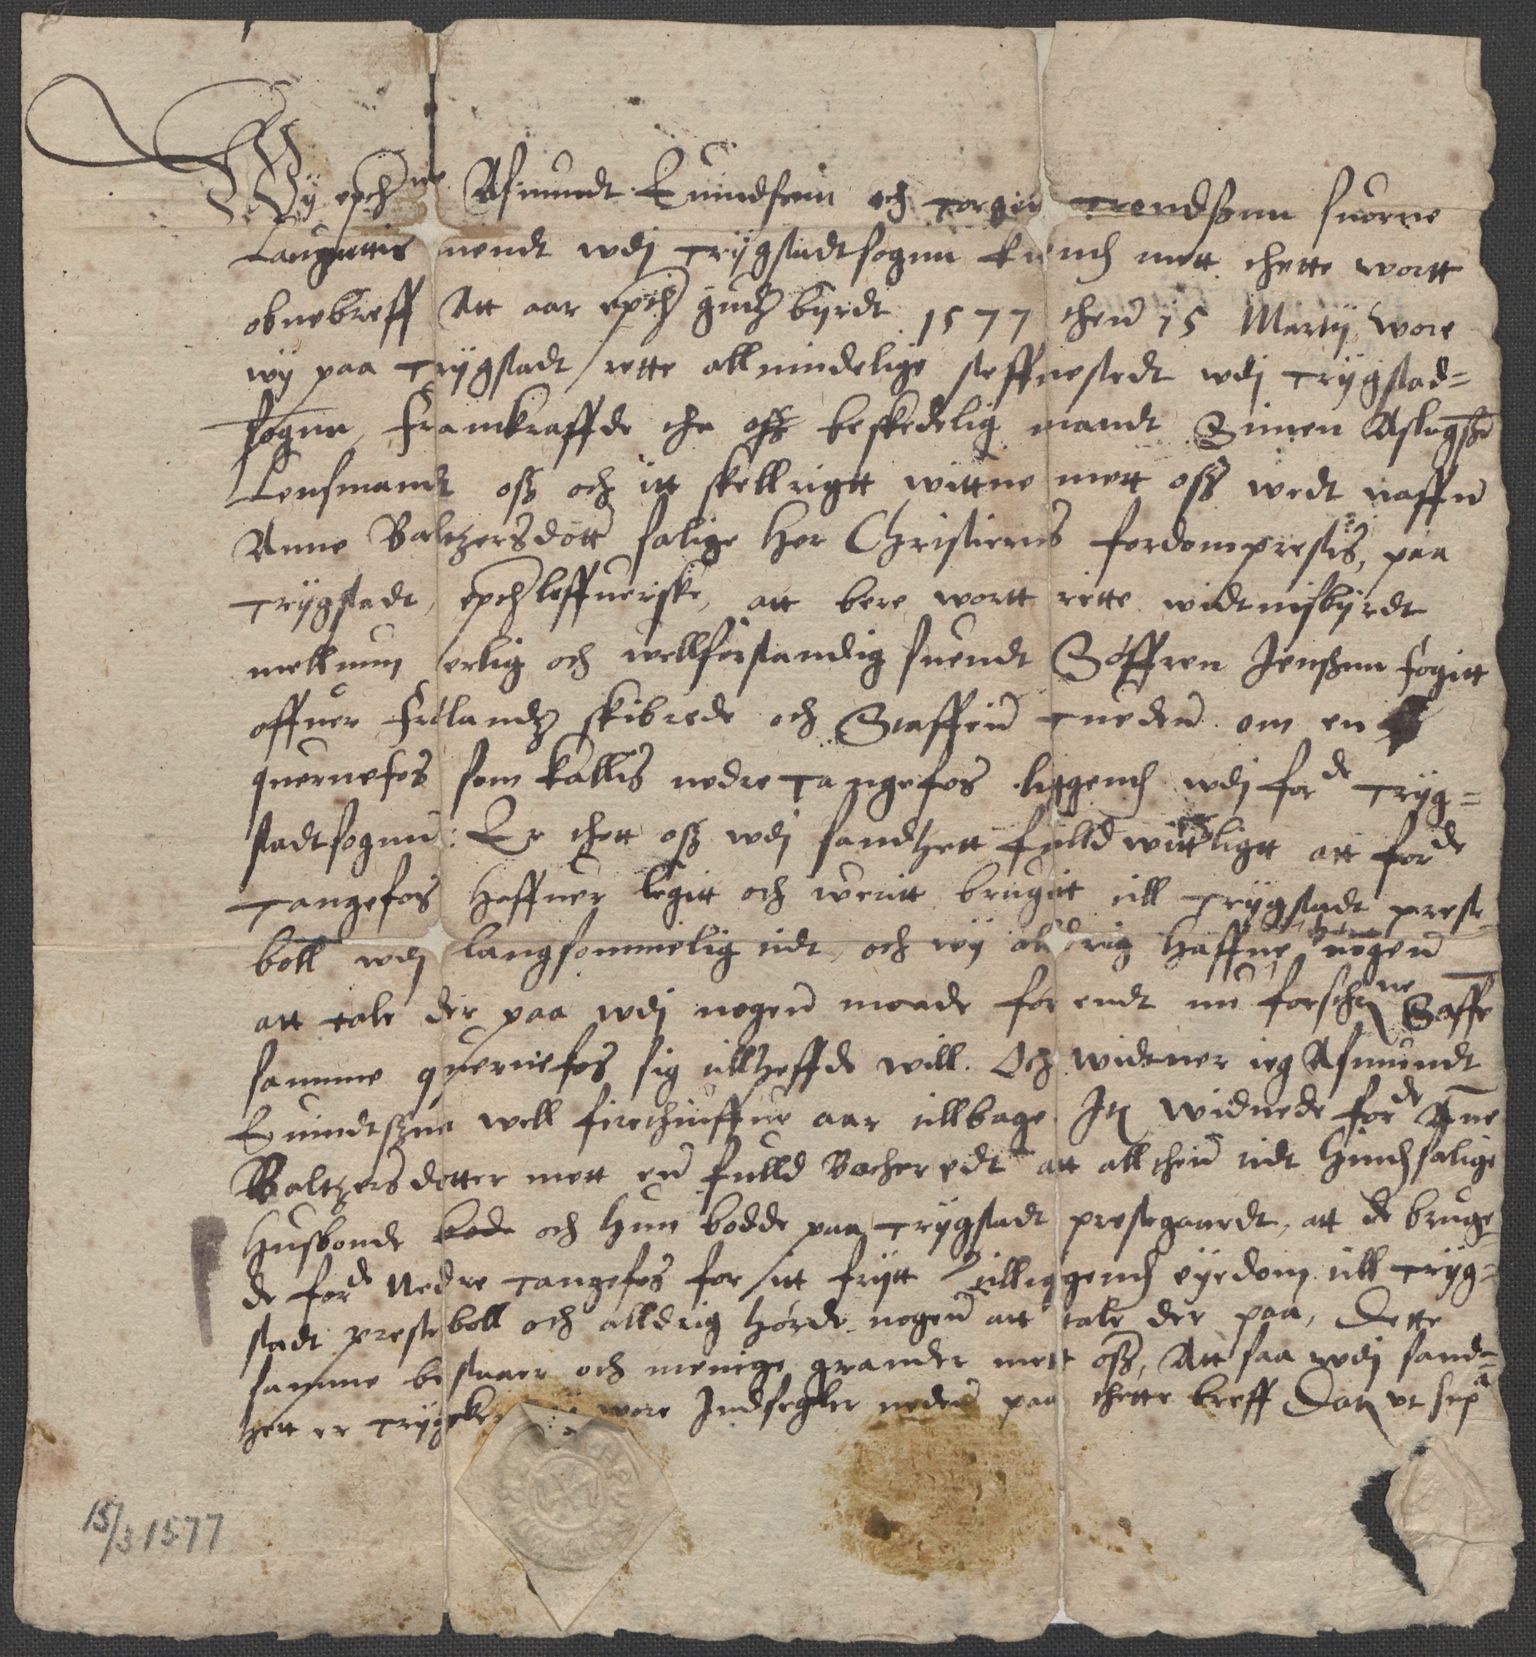 Wij epch ne Asmundt Euindsenn och Torger Trondsønn suorne
Laugrettis mendt wdj Trijgstadt sognn kiendis mett thette wortt
obnebreff Att aar epther gudz byrdt 1577 then 15 Martij wore
wij paa Trijgstadt rette allmindelige steffnestedt wdj Trijgstad=
sognn, framkraffde the oss beskedelig mandt Simen Aslagsøn
Lensmandt oss och itt skellrigtt wittne mett oss wedt naffn
Anne Baltzersdott salige Her Christierns fordomprestis, paa
Trijgstadt, epthleffuerske, att bere wortt rette widtnisbyrdt
mellum erlig och wellforstandig suendt Søffren Jenssønn fogitt
offuer frølandz skibrede och Staffen Tueden om en
quernefos som kallis nedre Tangefos liggendis wdj for de Trijg=
stadtsognn: Er thett oss wdj sandhett fulld witterligtt att for de
Tangefos haffuer legitt och weritt brugitt till Trijgstadt preste
boll wdj langsommelig tidt, och wij alldrig haffue hørt nogen
att tale der paa wdj nogen maade for endt nu forschr ne Staffen
samme quernefos sig tillheffde will. Och widtner ieg Asmundt
Euindtssønn well firethiuffue aar tillbage. It widnede for de Anne
Baltzersdotter mett en fulld Bocher edt att all then tidt hindis salige
Husbonde bode och hun bodde paa Trijgstadt prestegaardt, att de bruge
de for de Nedre Tangefos for itt frijtt tilliggendis eyedom till Trijg=
stadt presteboll och alldrig hørde nogen att tale der paa, Dette
samme bestaaer och menige grander mett oss, Att saa wdj sand=
hett er Trijcker wij wore Indsegler neden paa thette breff Dat ut sup a
15/3 1577